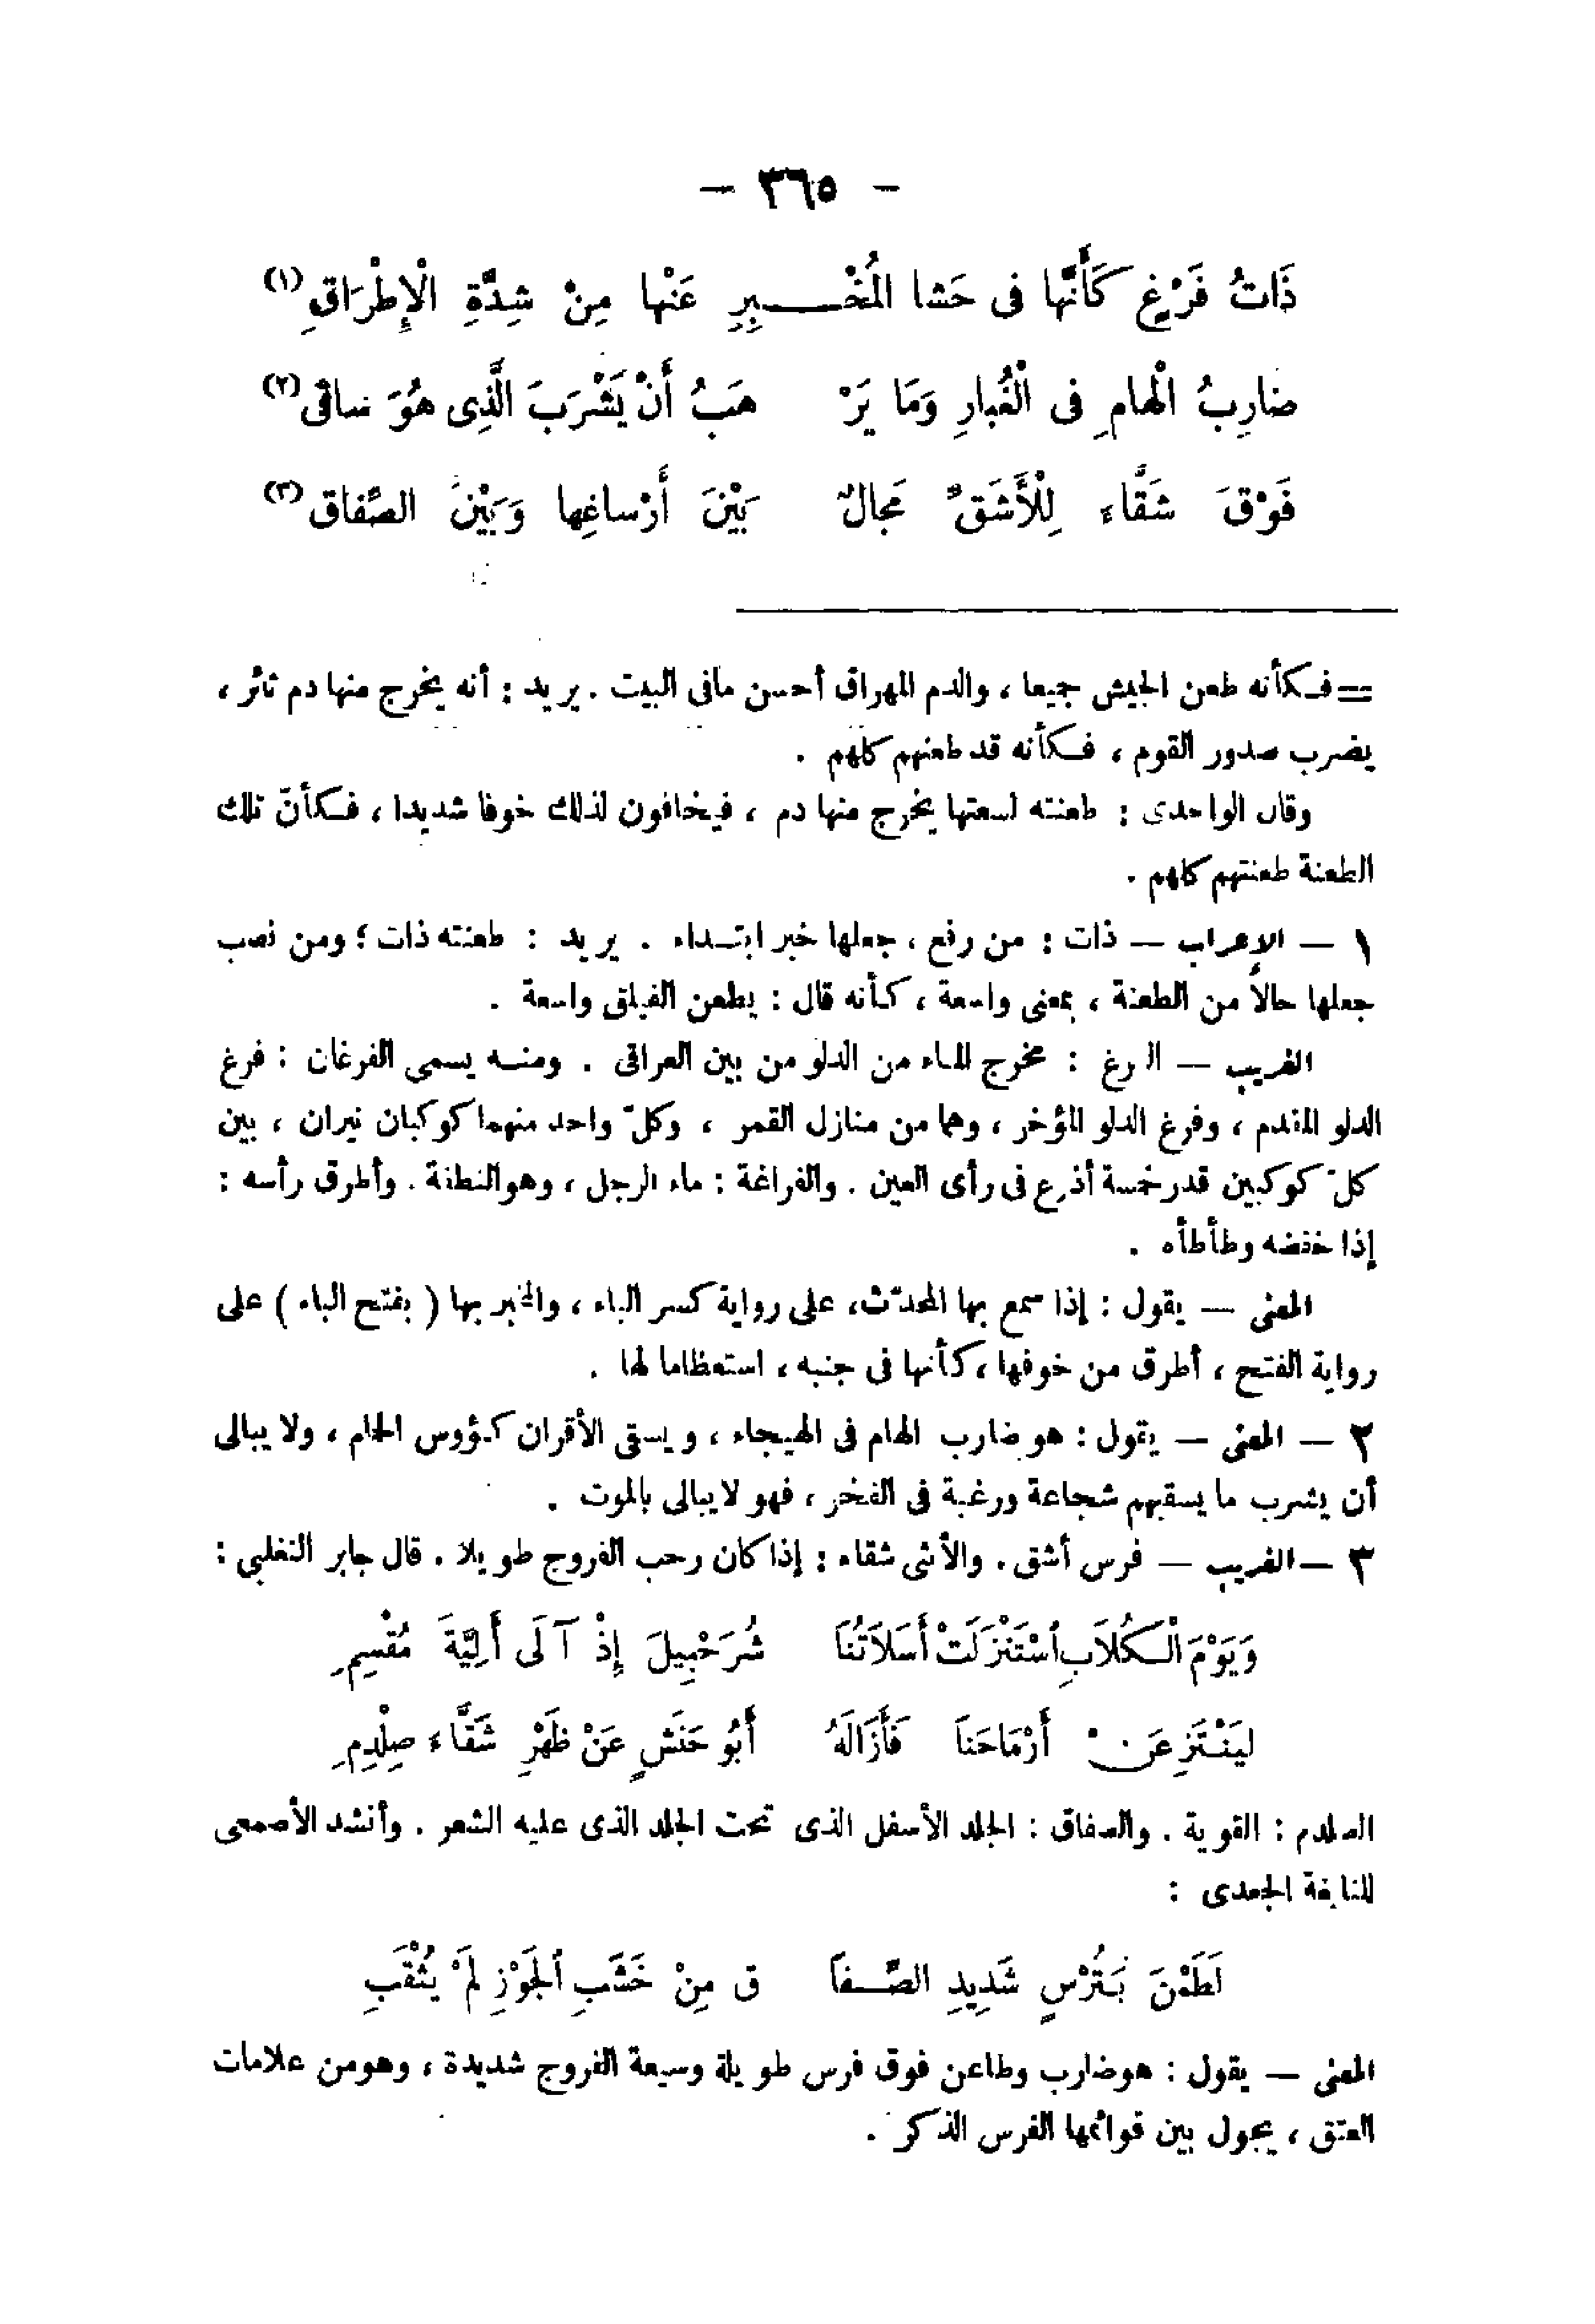 - ٣٦٥ -
ذَاتُ فَرْغٍ كَأَنَّهَا فى حَشا الْمُخْـــبِرِ عَنْها مِنْ شِدَّةِ الْإِطْرَاقِ (١)
ضارِبُ الْهامِ فى الْغُبارِ وَمَا يَرْ هَبُ أَنْ يَشْرَبَ الَّذِى هُوَ ساقى (٢)
فَوْقَ شَقَّاءَ لِلْأَشَقِّ مَجالٌ بَيْنَ أَرْساغِها وَبَيْنَ الصِّفاق (٣)
== فـكأنه طعن الجيش جميعا ، والدم المهراق أحسن مافى البيت . يريد : أنه يخرج منها دم ثائر ،
يضرب صدور القوم ، فـكأنه قد طعنهم كلهم .
وقال الواحدى : طعنته لسعتها يخرج منها دم ، فيخافون لذلك خوفا شديدا ، فـكأنّ تلك
الطعنة طعنتهم كلهم .
١ — الإعراب — ذات : من رفع ، جعلها خبر ابتـداء . يريد : طعنته ذات ؛ ومن نصب
جعلها حالاً من الطعنة ، بمعنى واسعة ، كأنه قال : يطعن الفيلق واسعة .
الغريب — الفرغ : مخرج الماء من الدلو من بين العراقى . ومنـه يسمى الفرغان : فرغ
الدلو المقدم ، وفرغ الدلو المؤخر ، وهما من منازل القمر ، وكلّ واحد منهما كوكبان نيران ، بين
كلّ كوكبين قدر خمسة أذرع فى رأى العين . والفراغة : ماء الرجل ، وهو النطفة . وأطرق رأسه :
إذا خفضه وطأطأه .
المعنى — يقول : إذا سمع بها المحدّث، على رواية كسر الباء ، والمخبر بها ( بفتح الباء ) على
رواية الفتح ، أطرق من خوفها ، كأنها فى جنبه ، استعظاما لها .
٢ — المعنى — يقول : هو ضارب الهام فى الهيجاء ، ويسقى الأقران كؤوس الحام ، ولا يبالى
أن يشرب ما يسقيهم شجاعة ورغبة فى الفخر ، فهو لا يبالى بالموت .
٣ — الغريب — فرس أشق . والأنثى شقاء : إذا كان رحب الفروج طويلا . قال جابر التغلبى :
وَيَوْمَ الْـكُلَابِ اسْتَنْزَلَتْ أَسَلَاتُنَا شُرَحْبِيلَ إِذْ آلَى أَلِيَّةَ مُقْسِمِ
لِيَنْتَزِعَنْ أَرْمَاحَنَا فَأَزَالَهُ أَبُو حَنَشٍ عَنْ ظَهْرِ شَقَّاءَ صِلْدِمِ
الصلدم : القوية . والصفاق : الجلد الأسفل الذى تحت الجلد الذى عليه الشعر . وأنشد الأصمعى
للنابغة الجعدى :
لُطِمْنَ بِتُرْسٍ شَدِيدِ الصِّـفَا قِ مِنْ خَشَبِ الْجَوْزِ لَمْ يُثْقَبِ
المعنى — يقول : هو ضارب وطاعن فوق فرس طويلة وسيعة الفروج شديدة ، وهو من علامات
العتق ، يجول بين قوائمها الفرس الذكر .